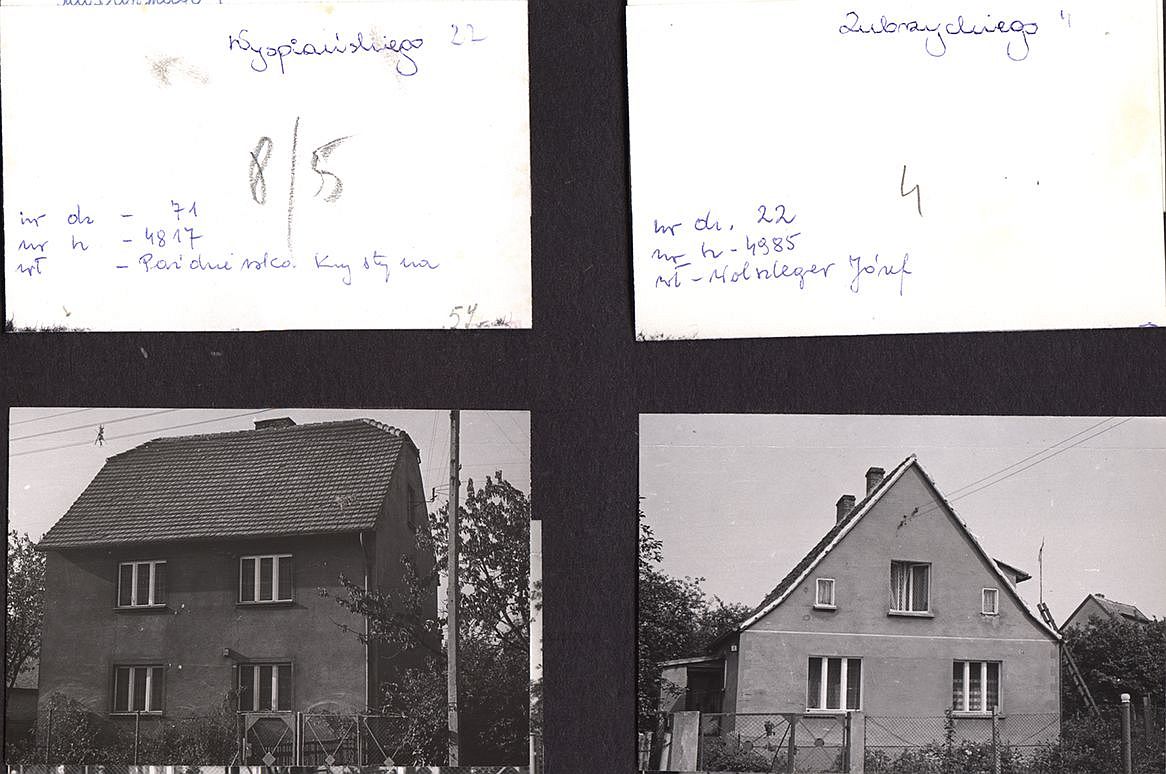 Wyspiańskiego 22
8/5
nr dz - 71
nr h - 4817
wł - Krystyna
54
Zubrzyckiego 4
4
nr dz. 22
nr h - 4985
wł - Holszleger Józef